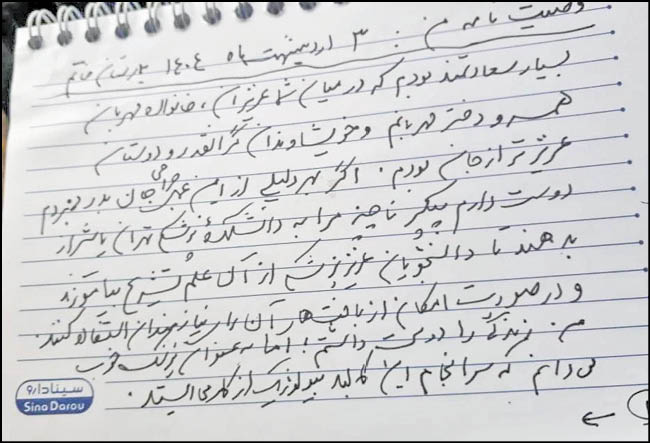 وصیت نامه من: ۳ اردیبهشت ماه ۱۴۰۴ بیمارستان خاتم
بسیار سعادتمند بودم که در میان شما عزیزان، خانواده مهربان
همسر و دختر مهربانم و خویشاوندان گرانقدر و دوستان
عزیزتر از جان بودم. اگر بهر دلیلی از این عمل جراحی جان بدر نبردم
دوست دارم پیکر ناچیز مرا به دانشکده پزشکی تهران یا شیراز
بدهند تا دانشجویان عزیز پزشکی از آن علم تشریح بیاموزند
و در صورت امکان از بافت‌های آن برای نیازمندان استفاده کنند.
من زندگی را دوست داشتم؛ اما به عنوان پزشک خوب
می دانم که سرانجام این کالبد بیولوژیک از کار می ایستد.
سینادارو
Sina Darou